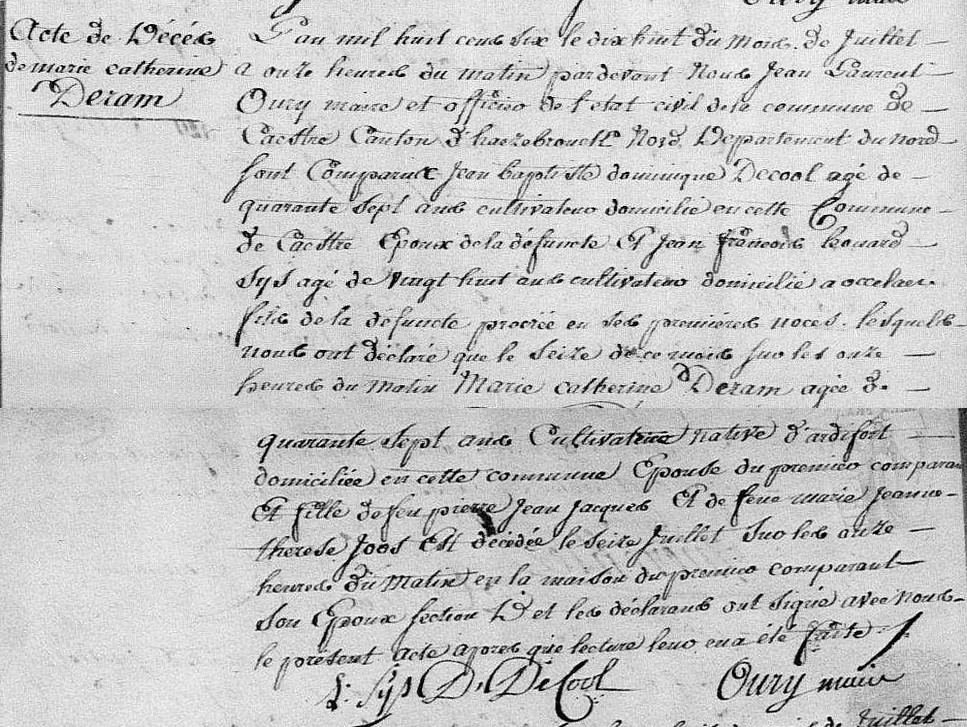 Oury maire
Acte de Décés
de marie catherine
Deram
L'an mil huit cens six le dix huit du mois de Juillet
a onze heures du matin pardevant Nous Jean Laurent
Oury maire et officier de l'etat civil de la commune de
Caestre Canton d'hazebrouck Nord Departement du nord
sont Comparux Jean baptiste dominique Decool agé de
quarante sept ans cultivateur domicilié en cette Commune
de Caestre Epoux de la défuncte Et Jean francois
Sys agé de vingt huit ans cultivateur domicilié a
fils de la defuncte procrée en ses premiéres noces. lesquels
nous ont déclaré que le seize de ce mois sur les onze
heures du matin Marie catherine Deram agée de
quarante sept ans Cultivatrice native d'ardifort
domiciliée en cette commune Epouse du premier comparan
Et fille de feu pierre Jean Jacques Et de feue marie Jeanne
therese Joos Est décédée le seize Juillet sur les onze
heures du Matin en la maison du premier comparant
son Epoux section D et les déclarans ont signé avec nous
le présent acte apres que lecture leur en a été faite
Sys D. DeCool Oury maire
Juillet